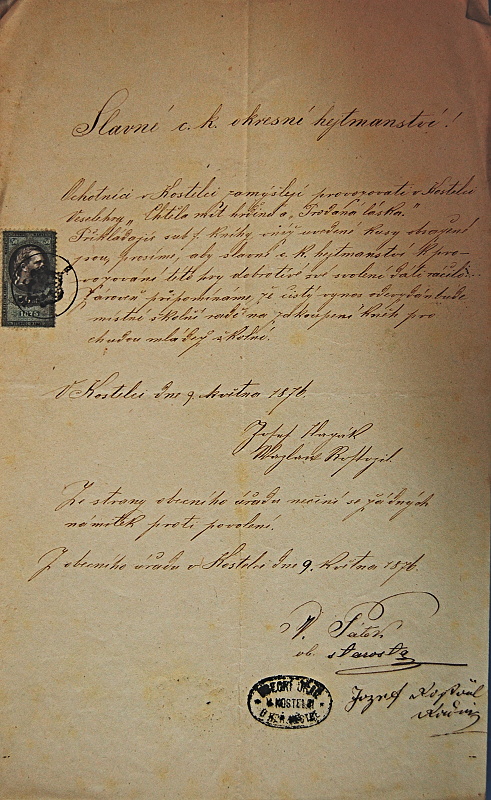 Slavné c. k. okresní hejtmanství!
Ochotníci v Kostelci zamýšlejí provozovati v Kostelci
Veselohry „Chtěla mít hrdinu a „Prodaná láska."
Přikládajíc sub ∫. knihy v níž uvedené kusy obsažené
jsou, prosíme, aby slavné c. k. hejtmanství k pro-
vozování této hry dobrotivě své svolení dáti ráčilo.
Zároveň připomínáme, že čistý výnos odevzdán bude
místní školní radě na zakoupení knih pro
chudou mládež školní.
V Kostelci dne 9. května 1876.
Josef
Wazlaw
Ze strany obecního úřadu nečiní se žádných
námitek proti povolení.
Z obecního úřadu v Kostelci dne 9. května 1876.
V. Pátek
ob. starosta
Jozef
OBECNÍ ÚŘAD
V KOSTELCI